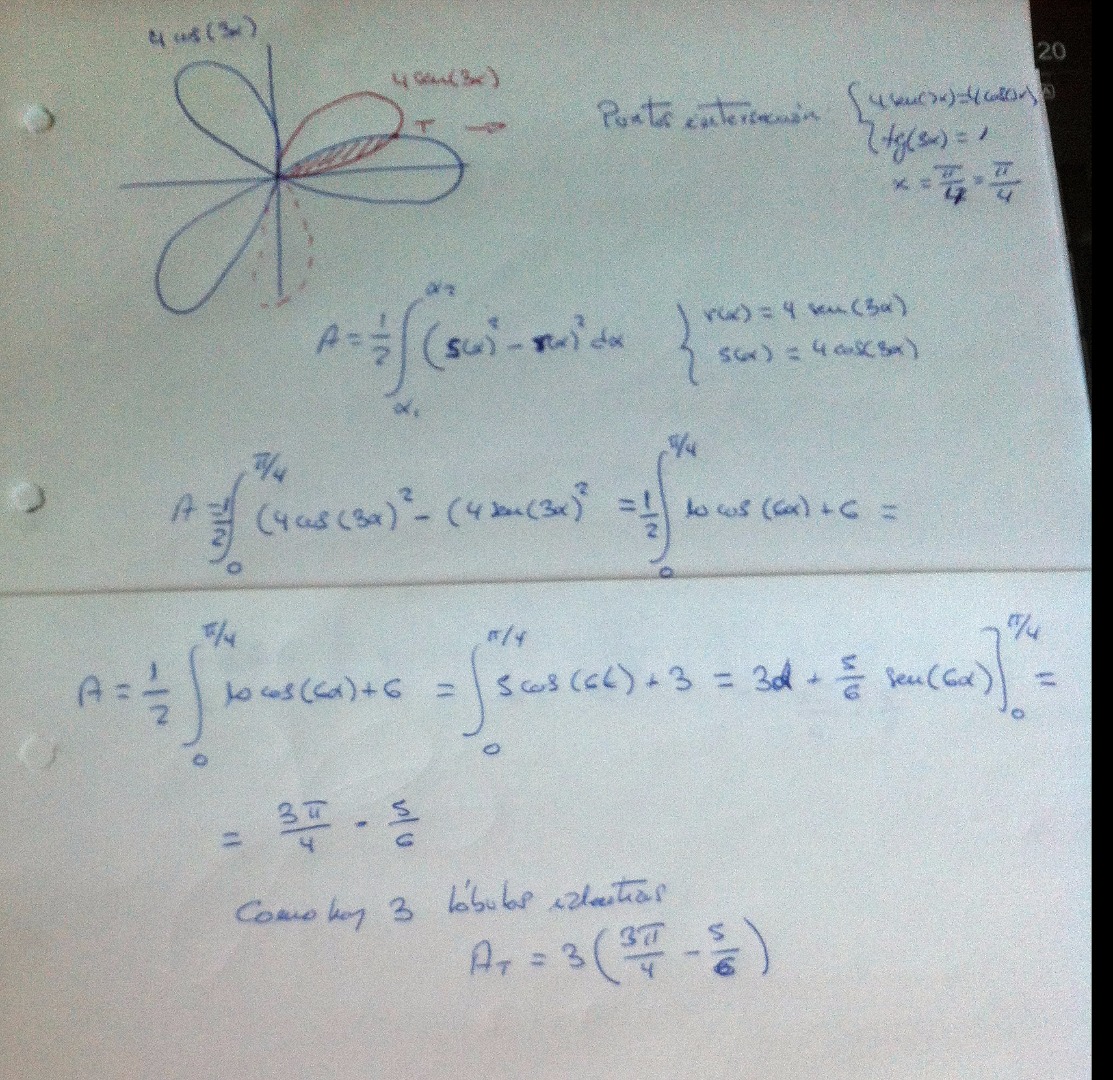 4 cos(3α)
20
4 sen(3α)
T
Puntos intersección { 4 sen(3x)=4 cos(3x)
tg(3x) = 1
x = π/4 = π/4
A = 1/2 ∫ α₁ α₂ (s(α)² - r(α)² dα { r(α) = 4 sen(3α)
s(α) = 4 cos(3α)
A = 1/2 ∫ 0 π/4 (4 cos(3α)² - (4 sen(3α)² = 1/2 ∫ 0 π/4 10 cos(6α) + 6 =
A = 1/2 ∫ 0 π/4 10 cos(6α) + 6 = ∫ 0 π/4 5 cos(6α) + 3 = 3α + 5/6 sen(6α) ] 0 π/4 =
= 3π/4 - 5/6
Como hay 3 lóbulos
A_T = 3 ( 3π/4 - 5/6 )